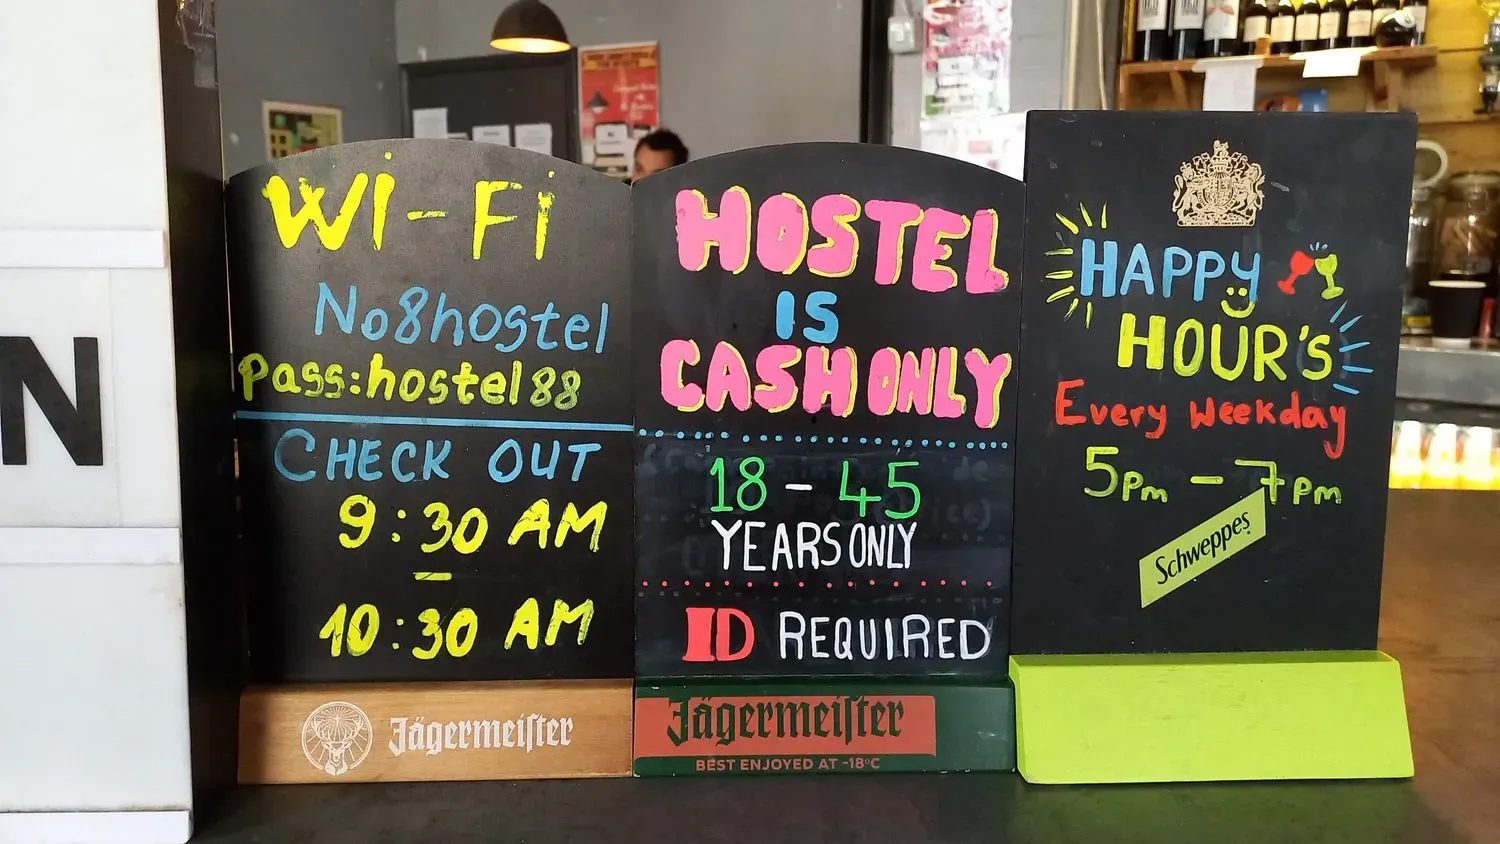 N
WI-Fi
No8hostel
Pass:hostel88
CHECK OUT
9:30 AM
–
10:30 AM
Jägermeiſter
HOSTEL
IS
CASH ONLY
18-45
YEARS ONLY
ID REQUIRED
Jägermeiſter
BEST ENJOYED AT -18°C
HAPPY
HOUR'S
Every Weekday
5pm - 7pm
Schweppes